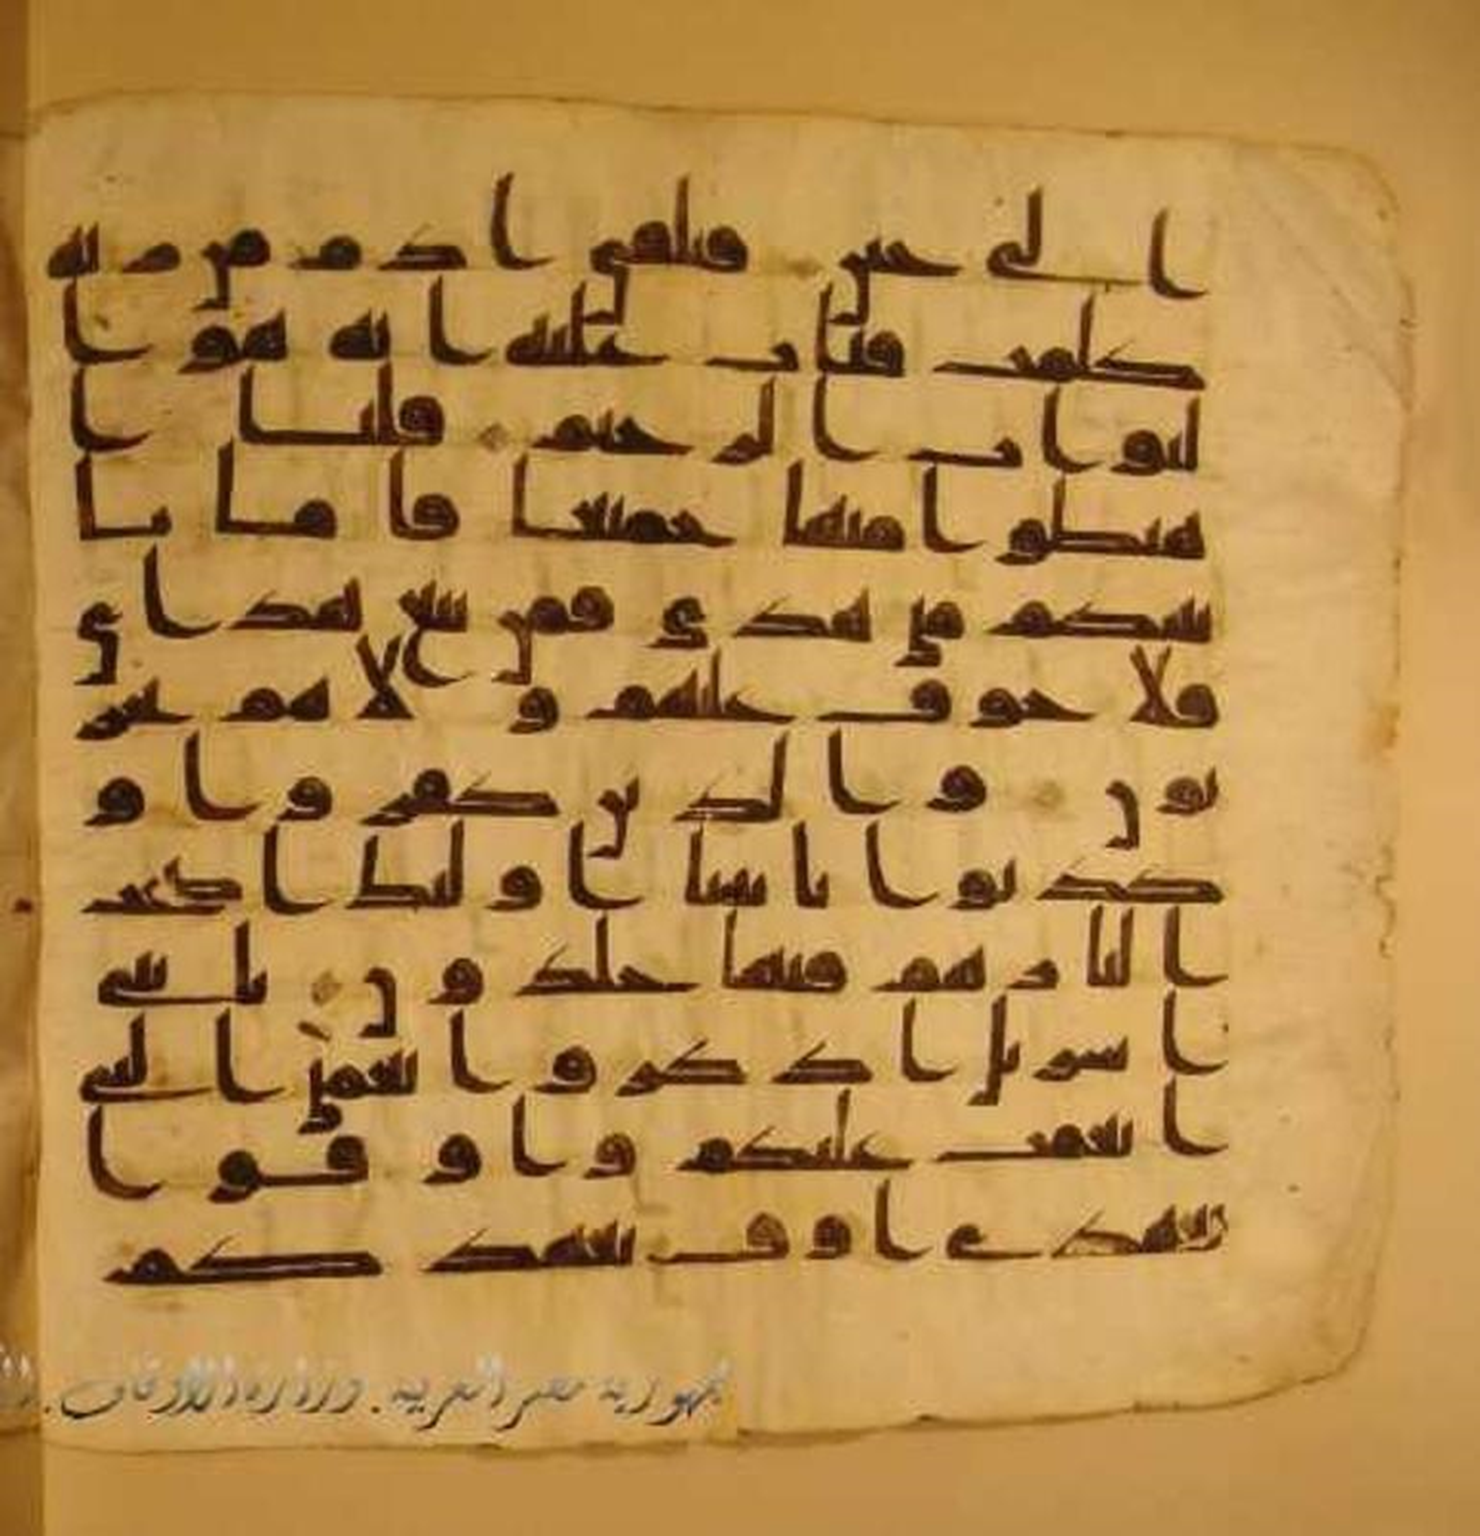 الى حين فتلقى ادم من ربه
كلمت فتاب عليه انه هو ا
لتواب الرحيم قلنا ا
هبطوا منها جميعا فاما يا
تينكم مني هدى فمن تبع هداي
فلا خوف عليهم و لا هم يحز
نون والذين كفروا و
كذبوا بايتنا اولئك اصحب
النار هم فيها خلدون يبني
اسريل اذكروا نعمتي التي
انعمت عليكم واوفوا
بعهدي اوف بعهدكم
جمهورية مصر العربية . وزارة الاوقاف .